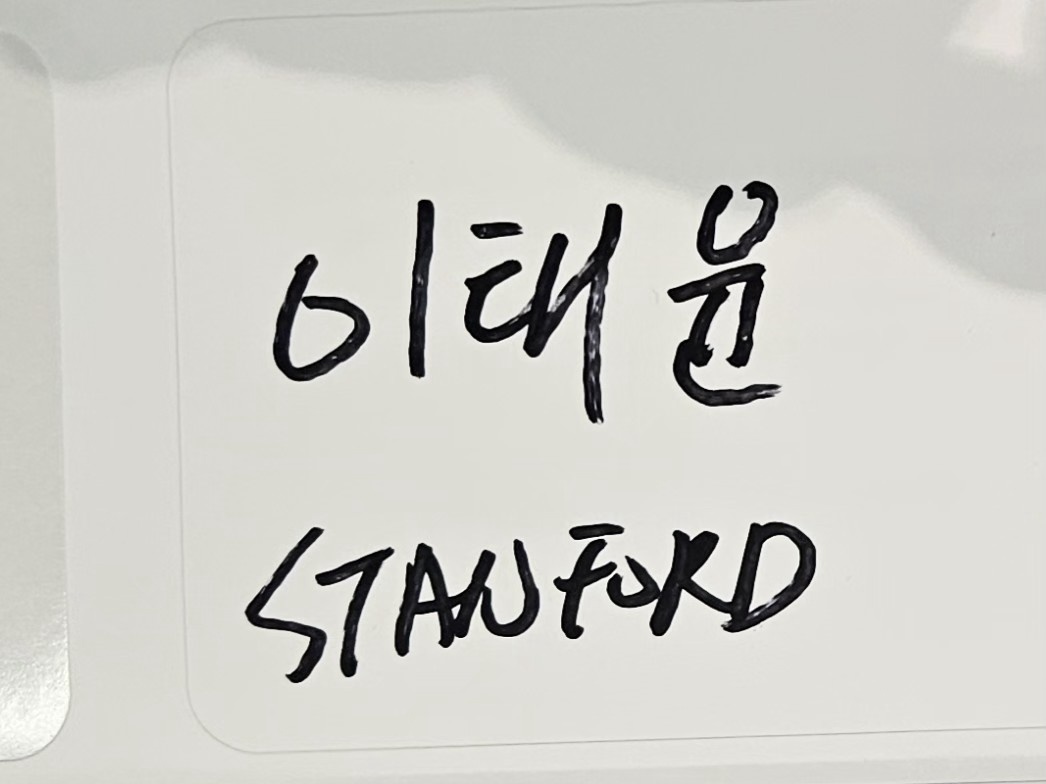 이태윤
STANFORD